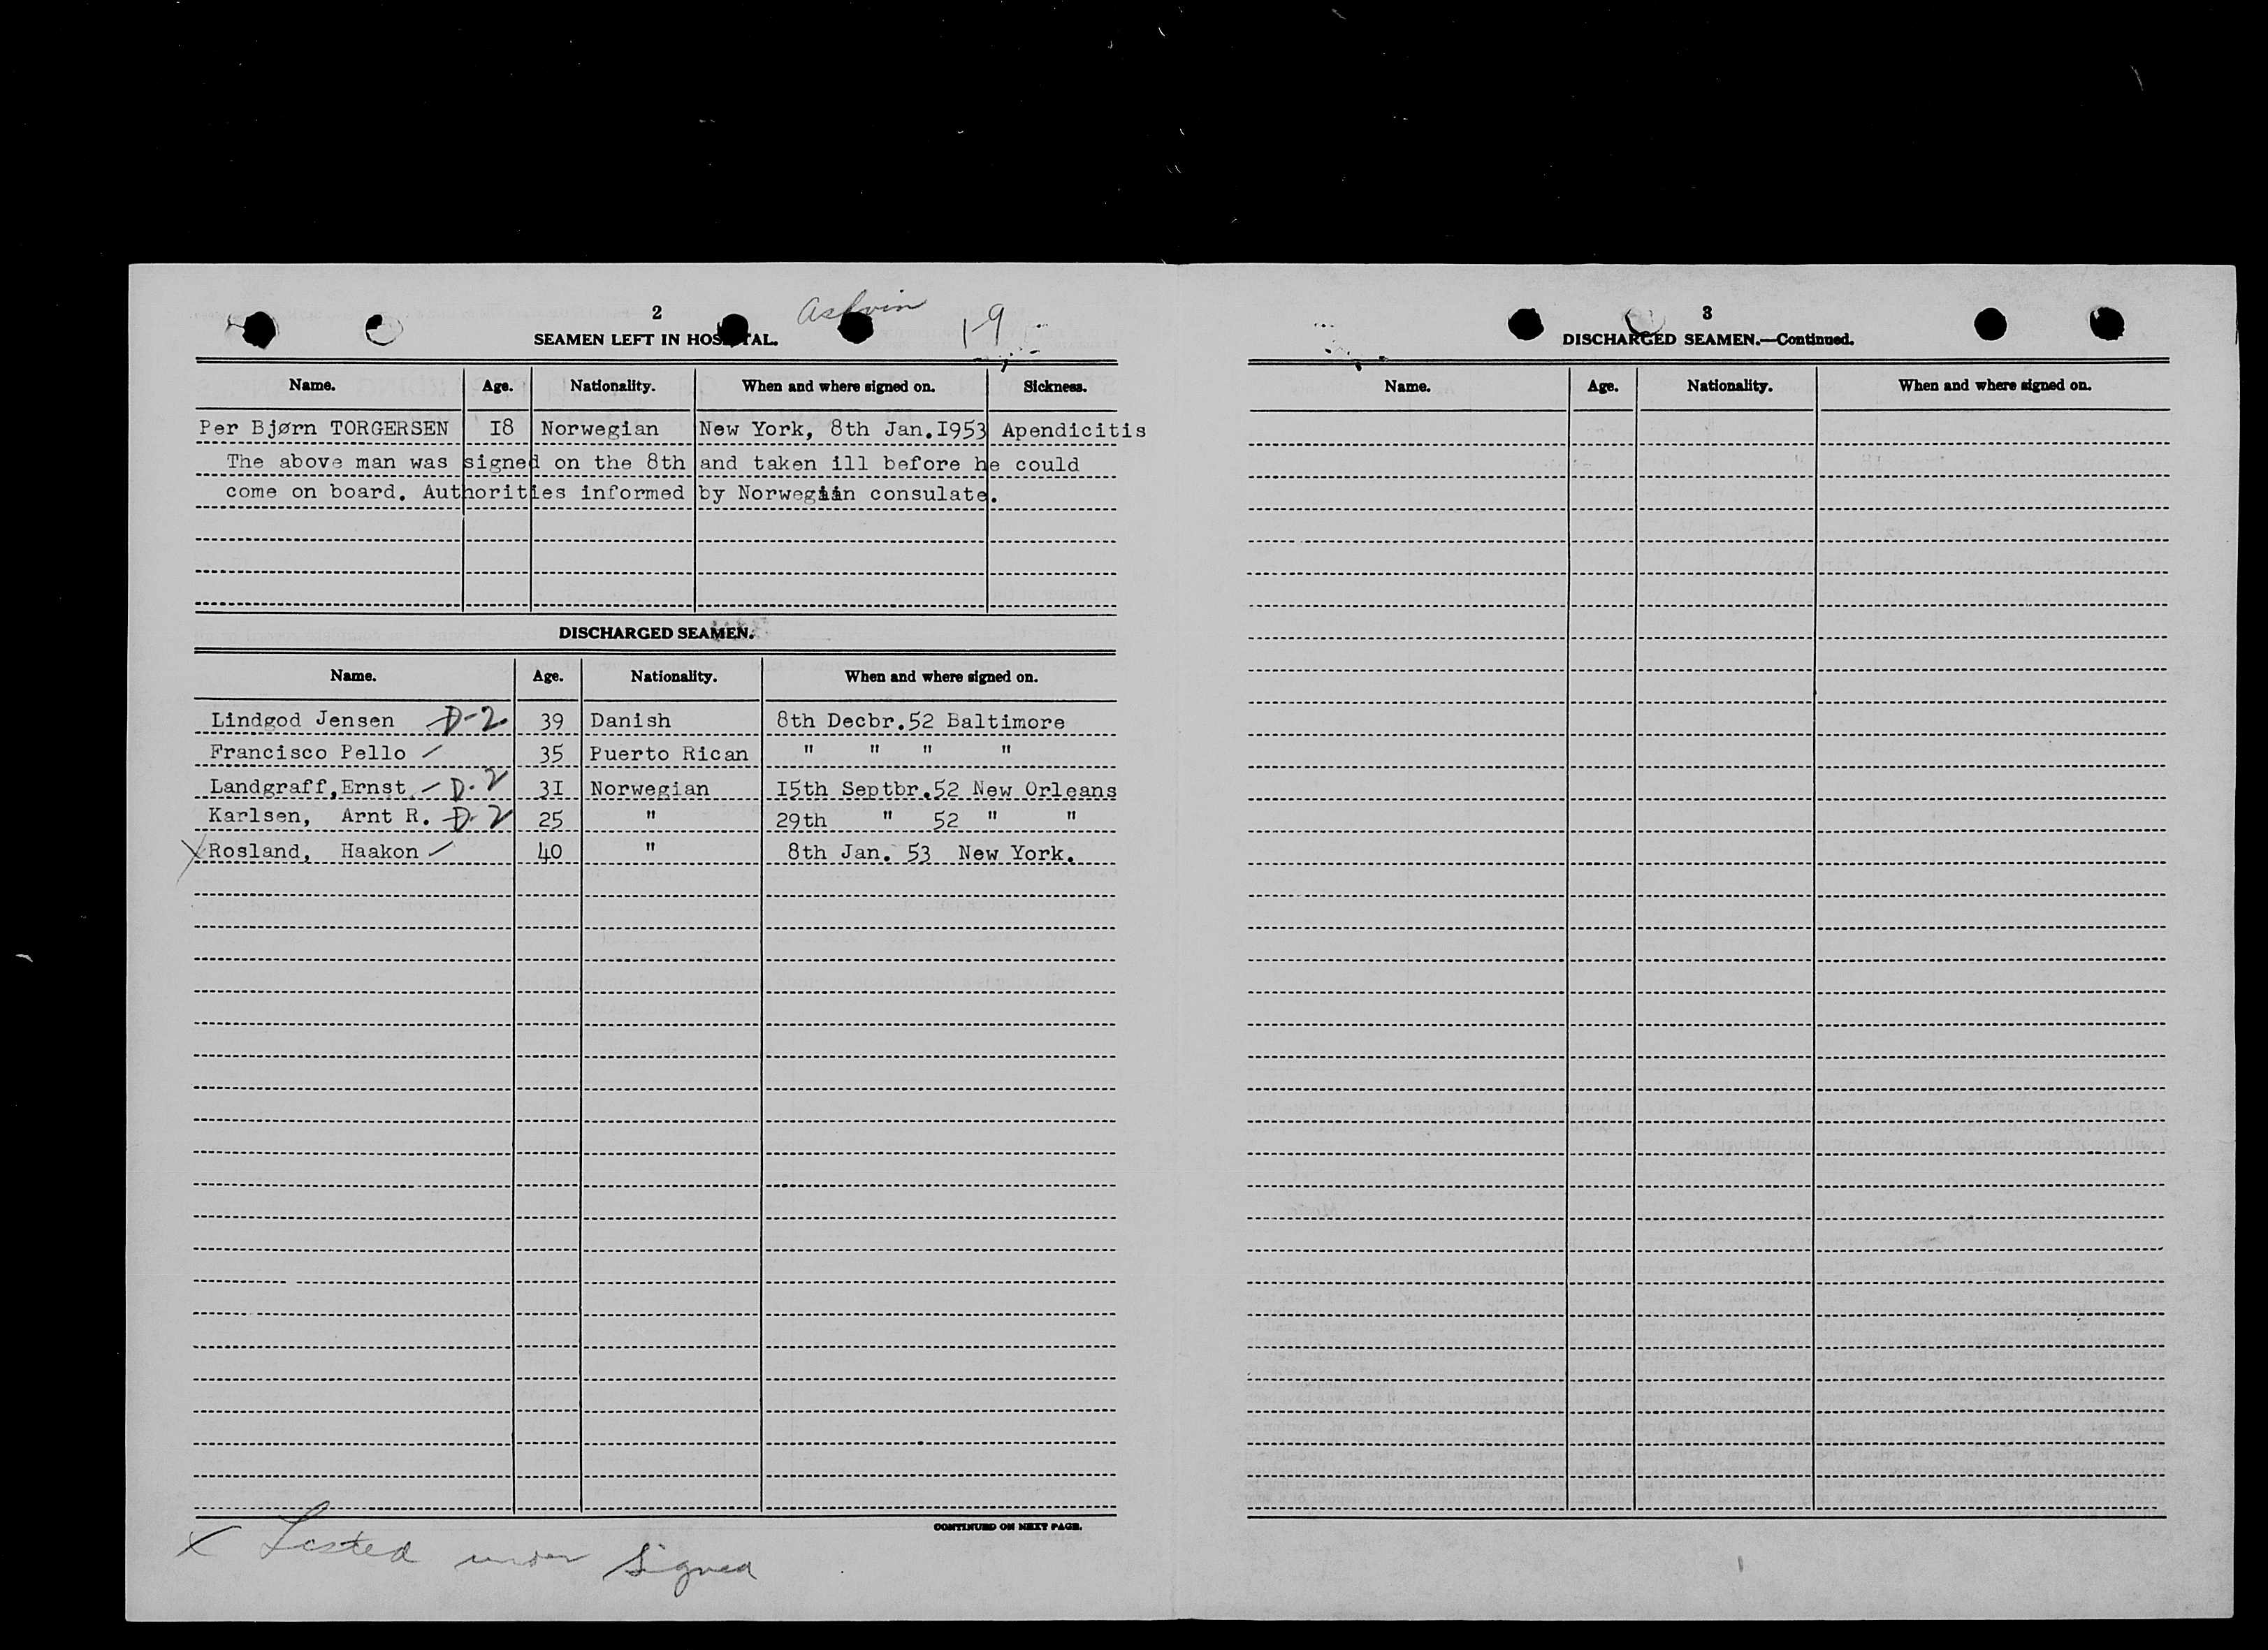 2
1-9
SEAMEN LEFT IN HOSPITAL.
Name. Age. Nationality. When and where signed on. Sickness.
Per Bjørn TORGERSEN I8 Norwegian New York, 8th Jan.I953 Apendicitis
The above man was signed on the 8th and taken ill before he could
come on board. Authorities informed by Norwegian consulate.
DISCHARGED SEAMEN.
Name. Age. Nationality. When and where signed on.
Lindgod Jensen D-2 39 Danish 8th Decbr.52 Baltimore
Francisco Pello ✓ 35 Puerto Rican " " " "
Landgraff,Ernst – D-2 3I Norwegian I5th Septbr.52 New Orleans
Karlsen, Arnt R. D-2 25 " 29th " 52 " "
X Rosland, Haakon ✓ 40 " 8th Jan. 53 New York.
CONTINUED ON NEXT PAGE.
X Listed under Signed
3
DISCHARGED SEAMEN.—Continued.
Name. Age. Nationality. When and where signed on.